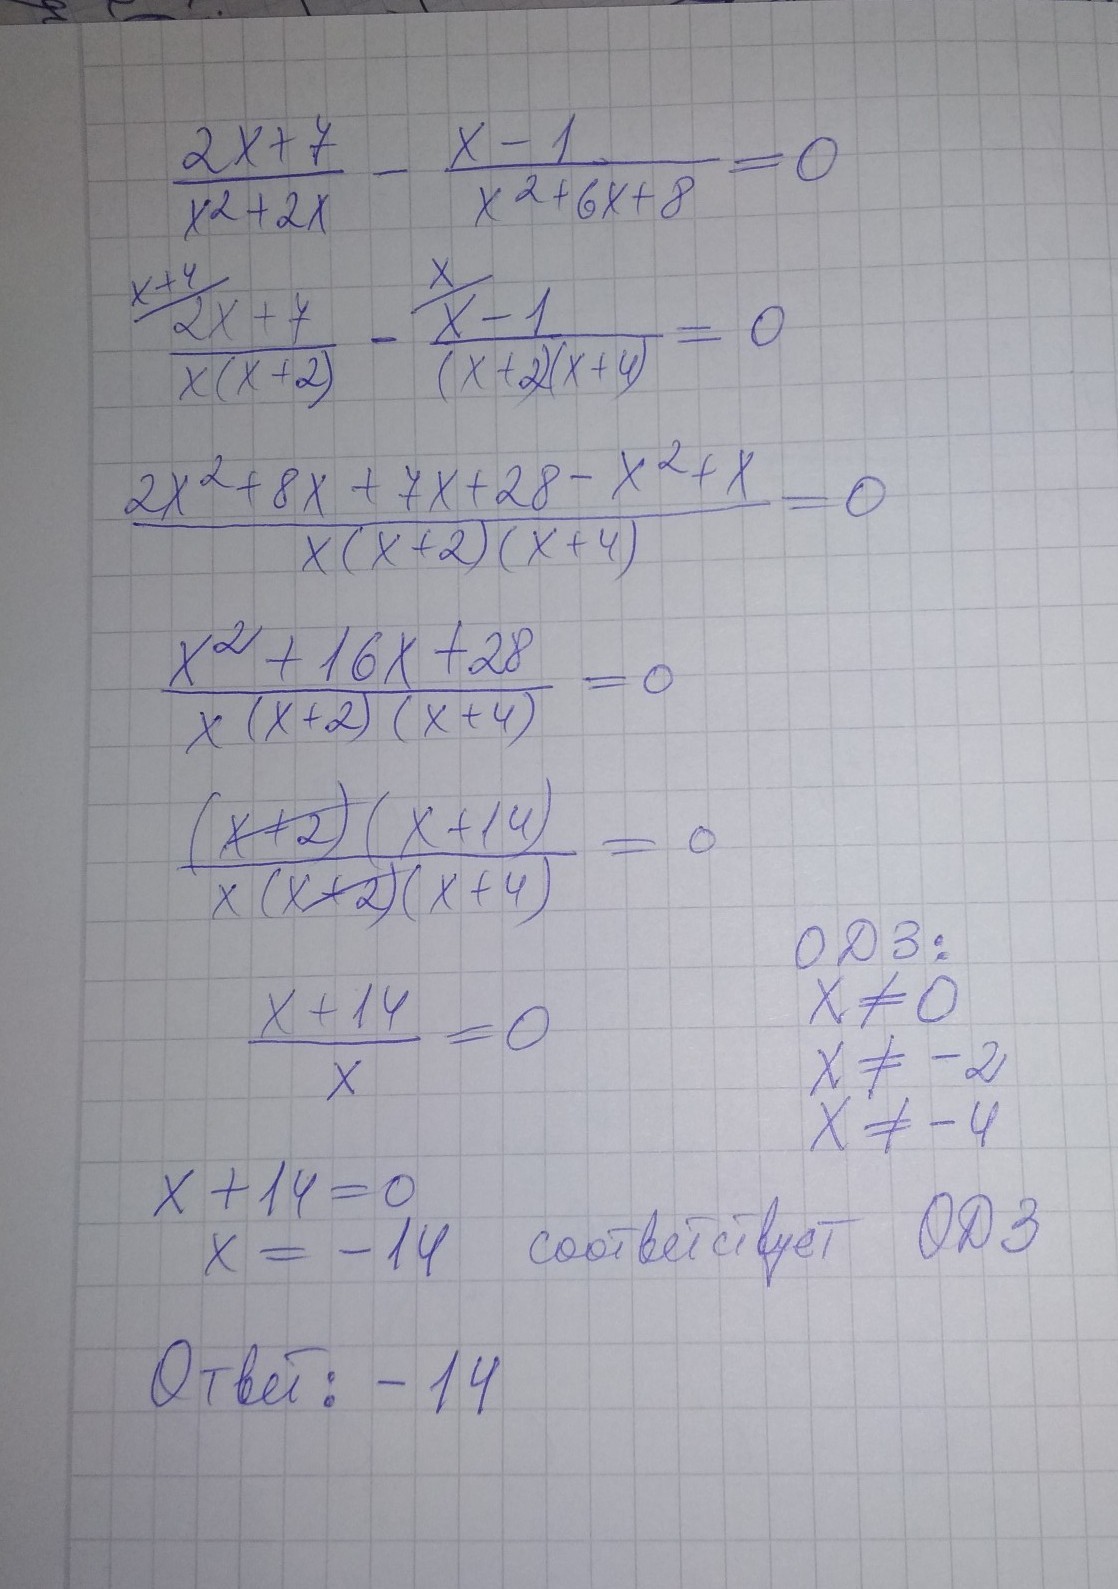 (2x+7)/(x²+2x) - (x-1)/(x²+6x+8) = 0
x+4/ (2x+7)/(x(x+2)) - x/ (x-1)/((x+2)(x+4)) = 0
(2x²+8x+7x+28-x²+x)/(x(x+2)(x+4)) = 0
(x²+16x+28)/(x(x+2)(x+4)) = 0
((x+2)(x+14))/(x(x+2)(x+4)) = 0
(x+14)/x = 0
ОДЗ:
x≠0
x≠-2
x≠-4
x+14=0
x = -14 соответствует ОДЗ
Ответ: -14